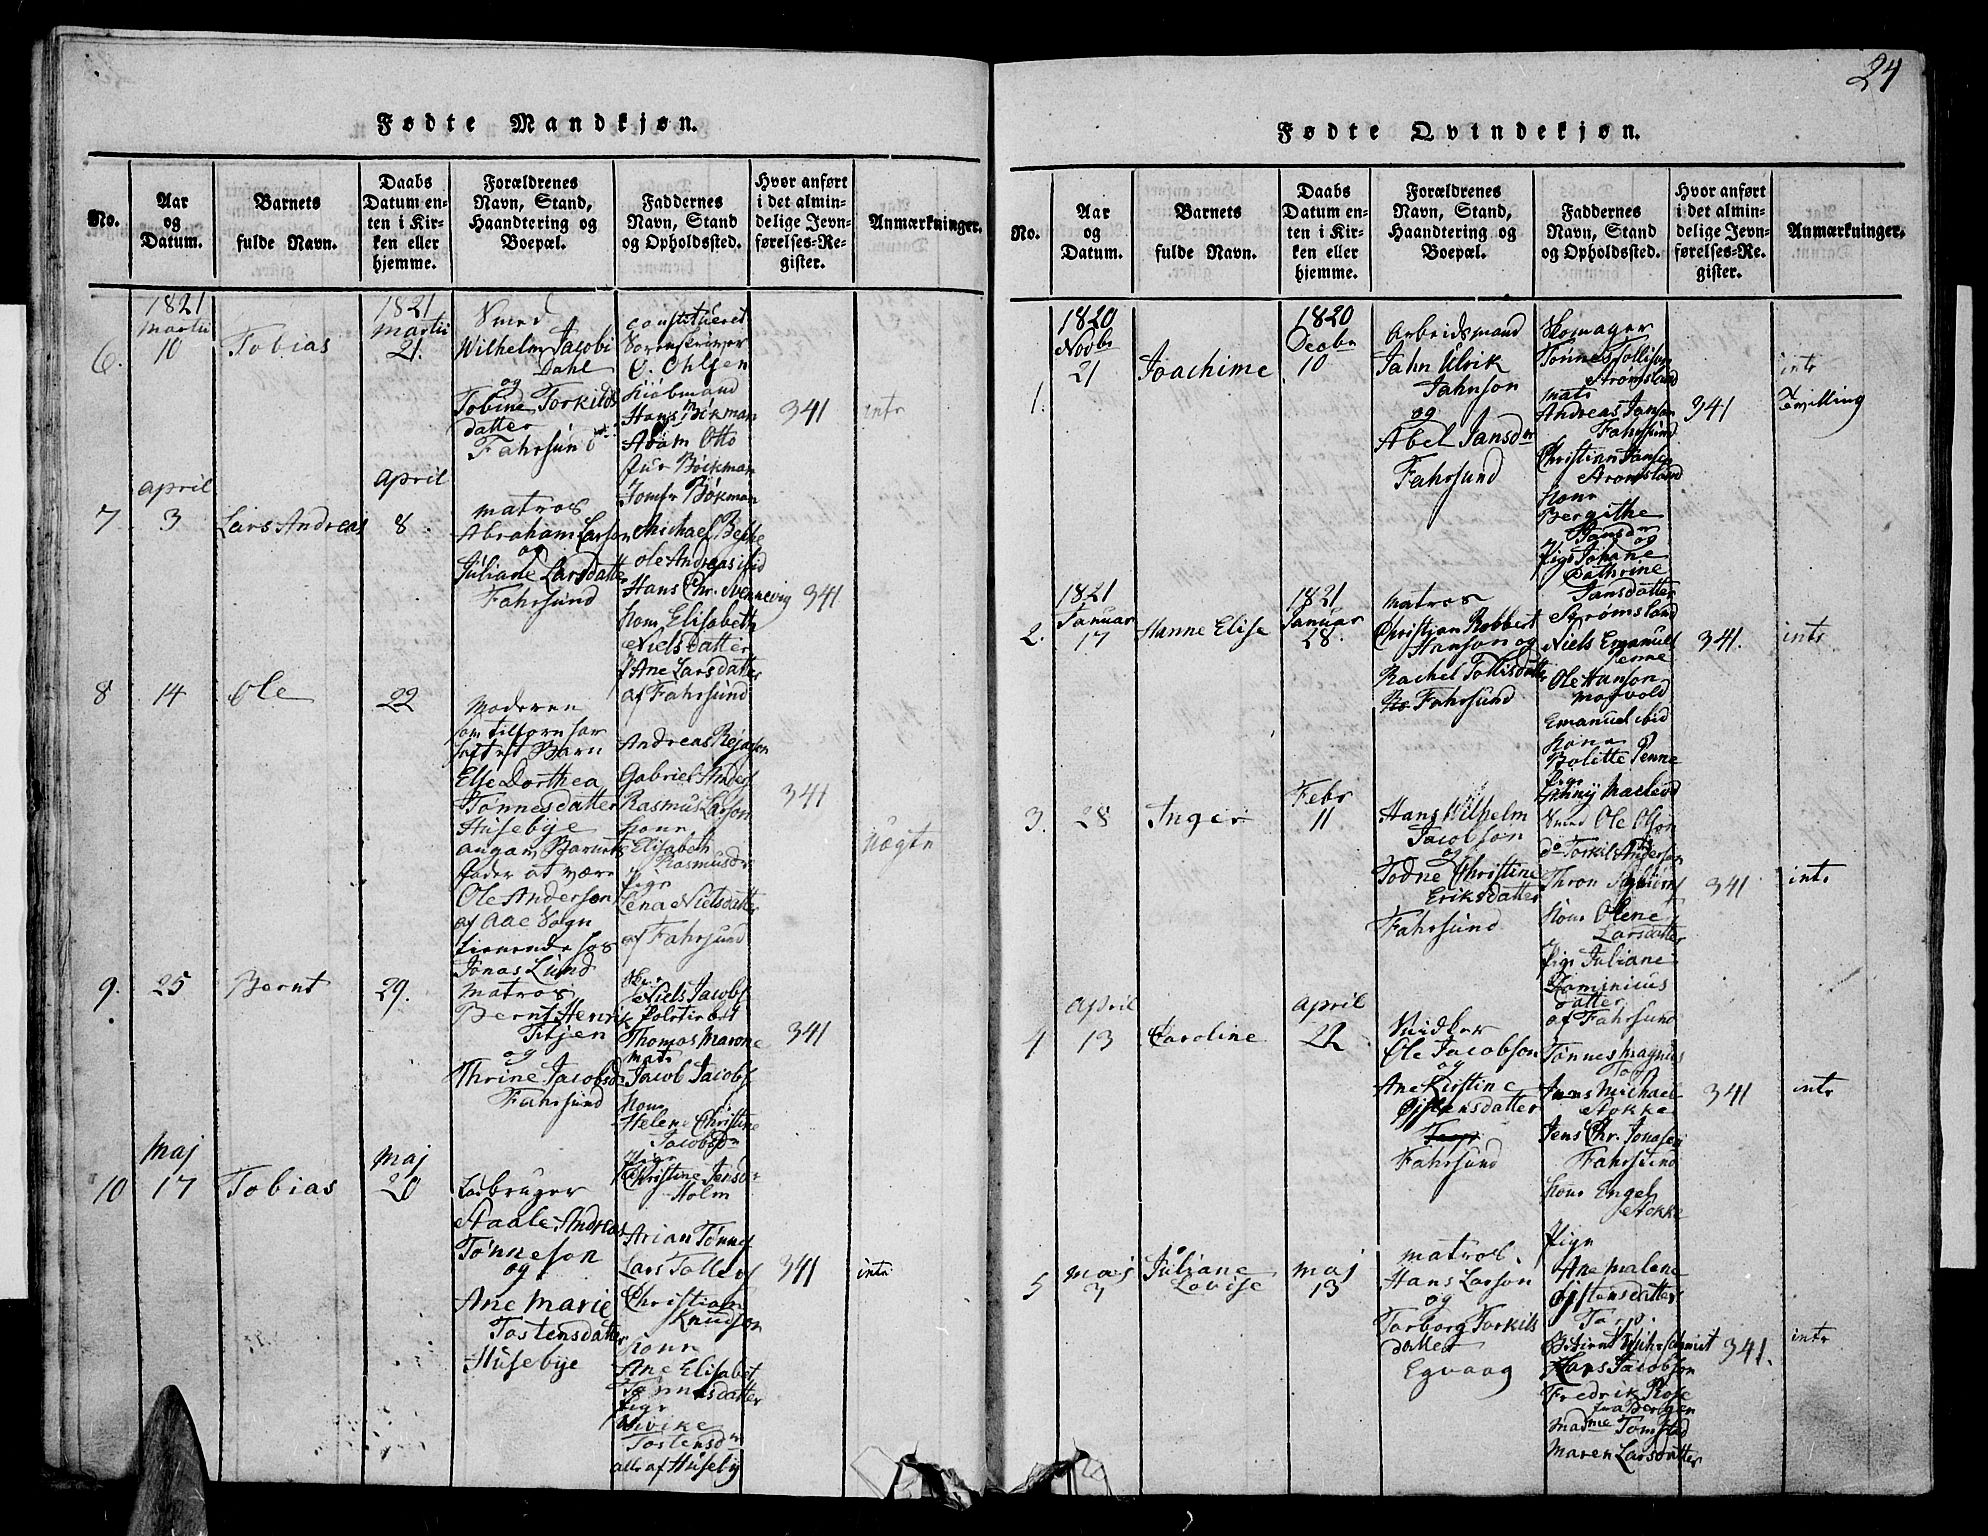 Fødte Mandkjøn.
No.
Aar
og
Datum.
Barnets
fulde Navn.
Daabs
Datum en-
ten i Kir-
ken eller
hjemme.
Forældrenes
Navn, Stand,
Haandtering og
Boepæl.
Faddernes
Navn, Stand
og Opholdssted.
Hvor anført
i det almin-
delige Jevn-
førelses-Re-
gister.
Anmærkninger.
6.
1821
Martii
10
Tobias
1821
Martii
21.
Smed
Wilhelm Jacobi
Dahl
og
Tobine Torkilds
datter
Fahrsund
constitueret
Sorenskriver
O. Ohlsen
Kiøbmand
Hans Bökman
Adam Otto
Jur Böckman
Jomfr Bökman
341
intr
7
April
3
Lars Andreas
April
8.
matros
Abraham Larson
og
Juliane Larsdatter
Fahrsund
Michael Bethe
Ole Andreas ibid
Hans Chr. Svennevig
Kone Elisabeth
Nielsdatter
P Ane Larsdatter
af Fahrsund
341
8
14
Ole
22
Moderen
som tilforn har
havt et Barn
Else Dorthea
Tønnesdatter
Husebye
angav Barnets
Fader at være
Ole Anderson
af Aae Sogn
tienende hos
Jonas Lund
Andreas Rejerson
Gabriel Anders
Rasmus Larson
Kone
Elisabeth
Rasmusdr
Pige
Lena Nielsdatter
af Fahrsund
341
Uægte
9.
25
Bernt
29.
Matros
Bernt Henrik
Titjen
og
Thrine Jacobsdr
Fahrsund
Niels Jacobs
Thomas Marone
mats
Jacob Jacobs
Kone
Helene Christine
Jacobsdr
Pige
Christine Jensdr
Holm
341
10
Maj
17
Tobias
Maj
20
Løbruger
Staale Andreas
Tønneson
og
Ane Marie
Tostensdatter
Husebye
Arian Tønnes
Lars Tollevs
Christian
Knudson
Kone
Ane Elisabet
Tønnesdatter
Pige
Vivike
Tostensdr
alle af Huseby
341
intr
24
Fødte Qvindekjøn.
No.
Aar
og
Datum.
Barnets
fulde Navn.
Daabs
Datum en-
ten i Kir-
ken eller
hjemme.
Forældrenes
Navn, Stand,
Haandtering og
Boepæl.
Faddernes
Navn, Stand
og Opholdssted.
Hvor anført
i det almin-
delige Jevn-
førelses-Re-
gister.
Anmærkninger.
1.
1820
Novbr
21
Joachime
1820
Decbr
10
Arbeidsmand
Jahn Ulrik
Jahnson
og
Abel Jansdr
Fahrsund
Skomager
Tønnes Tollison
Strømsland
mats
Andreas Janson
Fahrsund
Christian Jansen
Strømsland
Kone
Bergithe
Jansdr
og
Pige Johane
Cathrine
Jansdatter
Strømsland
341
intr
Tvilling
2.
1821
Januar
17
Hanne Elise
1821
Januar
28.
Matros
Christian Robbert
Hanson og
Rachel Tollisdatter
Fahrsund
Niels Emanuel
Jenne
Ole Hanson
Mosvold
Emanuel ibid
Kone
Bolitte Jenne
Pige
Jenny Macleod
341.
intr
3.
28
Inger
Febr
11
Hans Wilhelm
Jacobson
og
Todne Christine
Eriksdatter
Fahrsund
Smed Ole Olson
do Torkil Anderson
Thron
Kone Olene
Larsdatter
Pige Juliane
Dominicus
datter
af Fahrsund
341
intr
4
April
13
Caroline
April
22
Snidker
Ole Jacobson
og
Ane Kirstine
Øistensdatter
Fahrsund
Tønnes Magnus
Torp
Jens Michael
Stokke
Jens Chr. Jonasen
Fahrsund
Kone Engel
Stokke
Pige
Ane Malene
Øistensdatter
Torp.
341
intr
5
Maj
3
Juliane
Lovise
Maj
13
Matros.
Hans Larson
og
Torborg Torkils
datter
Egvaag
Hans Jacobson
Fredrik Rose
fra Bergen
Madme Tomsted
Maren Larsdatter
341.
intr